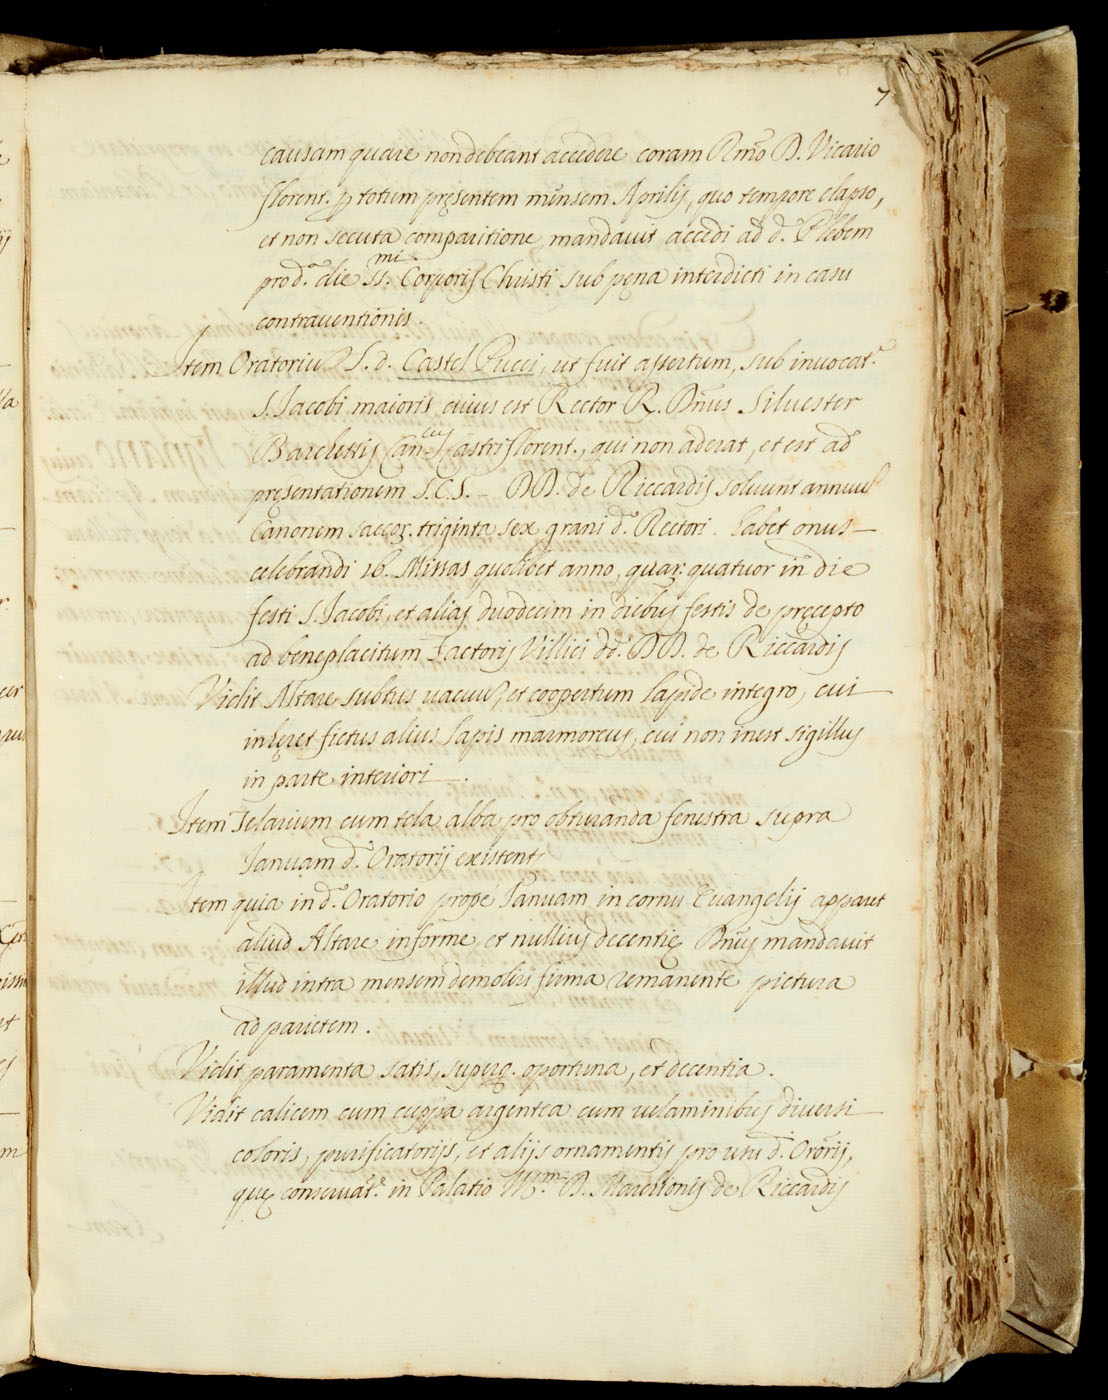 7
causam quare non debeant accedere coram Rmo D. Vicario
florent. p totum presentem mensem Aprilis, quo tempore elapso,
et non secuta comparitione mandauit accedi ad d. Plebem
pro d.a die SS.mi Corporis Christi sub pena interdicti in casu
contrauentionis.
Item Oratoriu S. d. Castel Pucci, ut fuit assertum, sub inuocat.e
S. Jacobi maioris cuius est Rector R. Dnus Siluester
Cancus Castri florent., qui non aderat, et est ad
presentationem S.C.S. - DD. de Riccardis soluunt annuu
Canonem saccor. triginta sex grani d. Rectori. habet onus—
celebrandi 16. Missas quolibet anno, quar. quatuor in die
festi S. Jacobi, et alias duodecim in diebus festis de precepto
ad beneplacitum Factoris Villici dd. DD. de Riccardis
Vidit Altare subtus uacuu, et coopertum lapide integro, cui—
inheret fictus alius lapis marmoreus, cui non inest sigillus
in parte interiori—.
Item Telarium cum tela alba pro obturanda fenestra supra
Januam d. Oratorij existent
Item quia in d. Oratorio prope Januam in cornu Euangelij apparet
aliud Altare informe et nullius decentie Dnus mandauit
illud intra mensem demoliri firma remanente pictura
ad parietem.
Vidit paramenta satis, superq. oportuna, et decentia.
Vidit calicem cum cuppa argentea cum uelaminibus diuersi—
coloris, purificatorijs, et alijs ornamentis pro usu d. Ororij,
que conseruat.r in Palatio D. de Riccardis